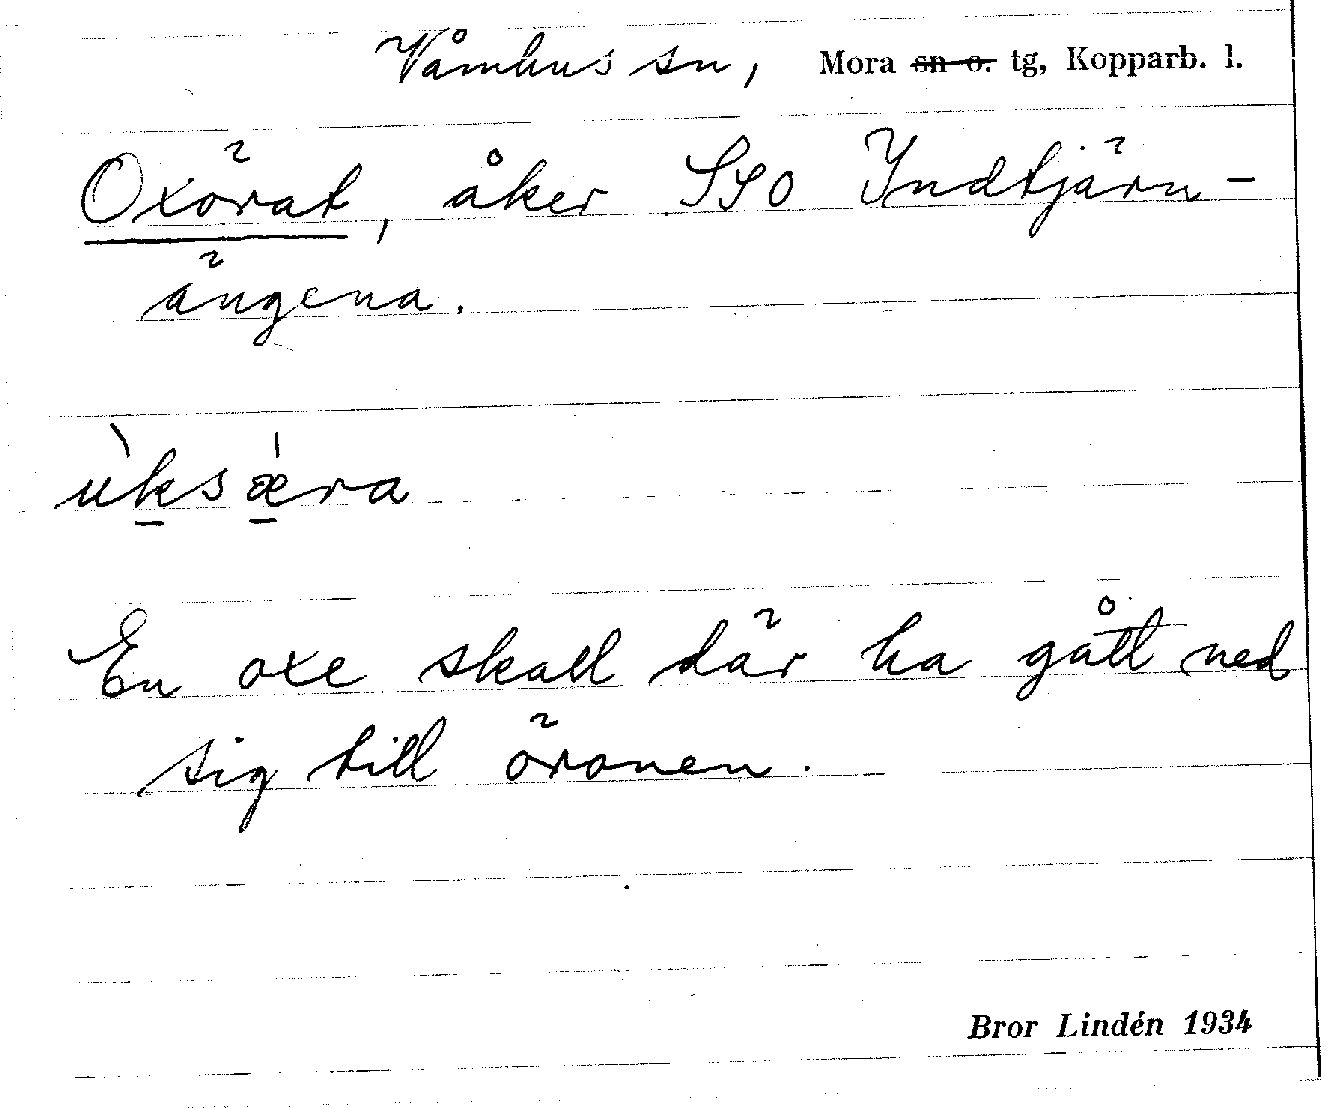 Våmhus sn, Mora sn o. tg, Kopparb. l.
Oxörat, åker SSO Indtjärn-
ängena.
ùksǽra
En oxe skall där ha gått ned
sig till öronen.
Bror Lindén 1934